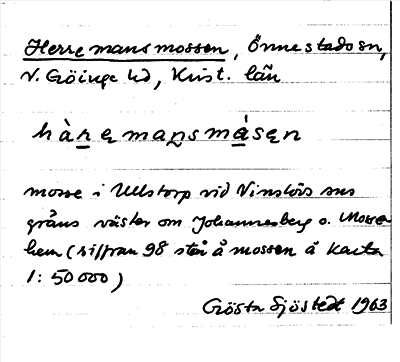 Herremansmossen, Önnestads sn,
V. Göinge hd, Krist. län
hàr̲emaṉsmá̲sęn
mosse i Ullstorp vid Vinslövs sns
gräns väster om Johannesberg o. Mossa-
hem (siffran 98 står å mossen å karta
1:50000)
Gösta Sjöstedt 1963